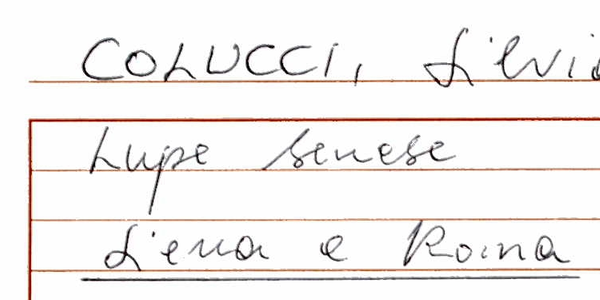 COLUCCI, Silvio
Lupe senese
Siena e Roma